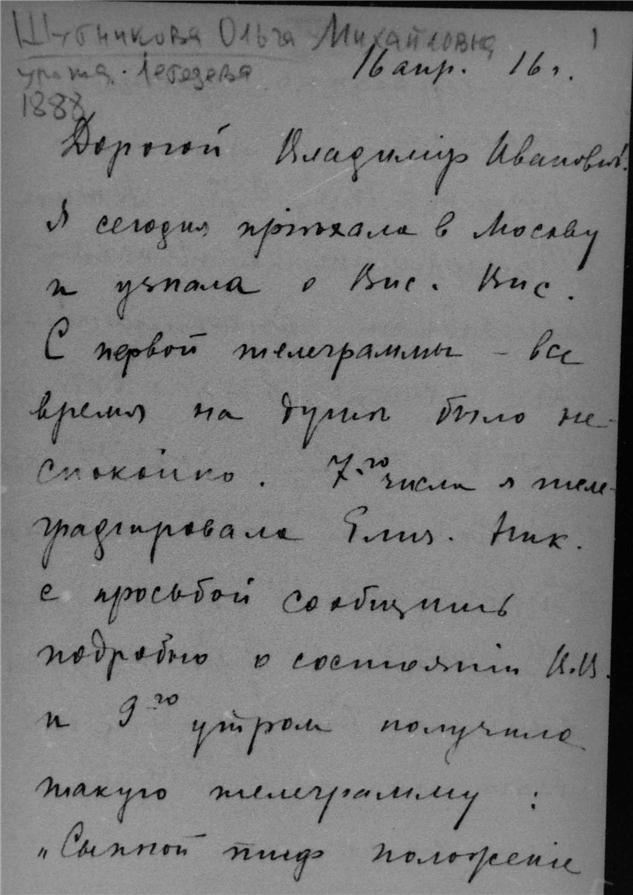 Шубникова Ольга Михайловна 1
урожд. Лебедева
1888
16 апр. 16 г.
Дорогой Владимір Иванович!
Я сегодня пріѣхала в Москву
и узнала о Вис. Вис.
С первой телеграммы – все
время на душѣ было не-
спокойно. 7-го числа я теле-
графировала Елиз. Ник.
с просьбой сообщить
подробно о состояніи В.В.
и 9-го утром получила
такую телеграмму :
„Сыпной тиф положеніе